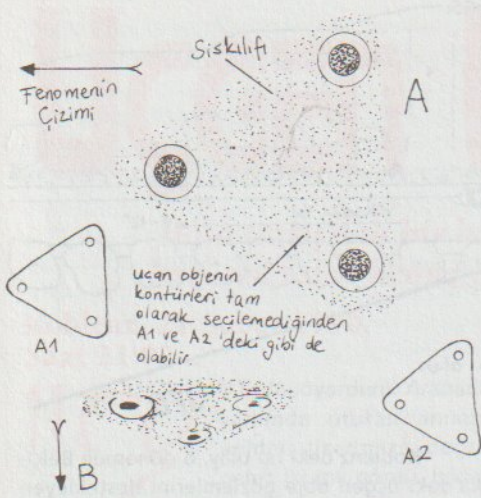 Siskılıfı
Fenomenin
Çizimi
A
uçan objenin
kontürleri tam
olarak seçilemediğinden
A1 ve A2'deki gibi de
olabilir.
A1
A2
B